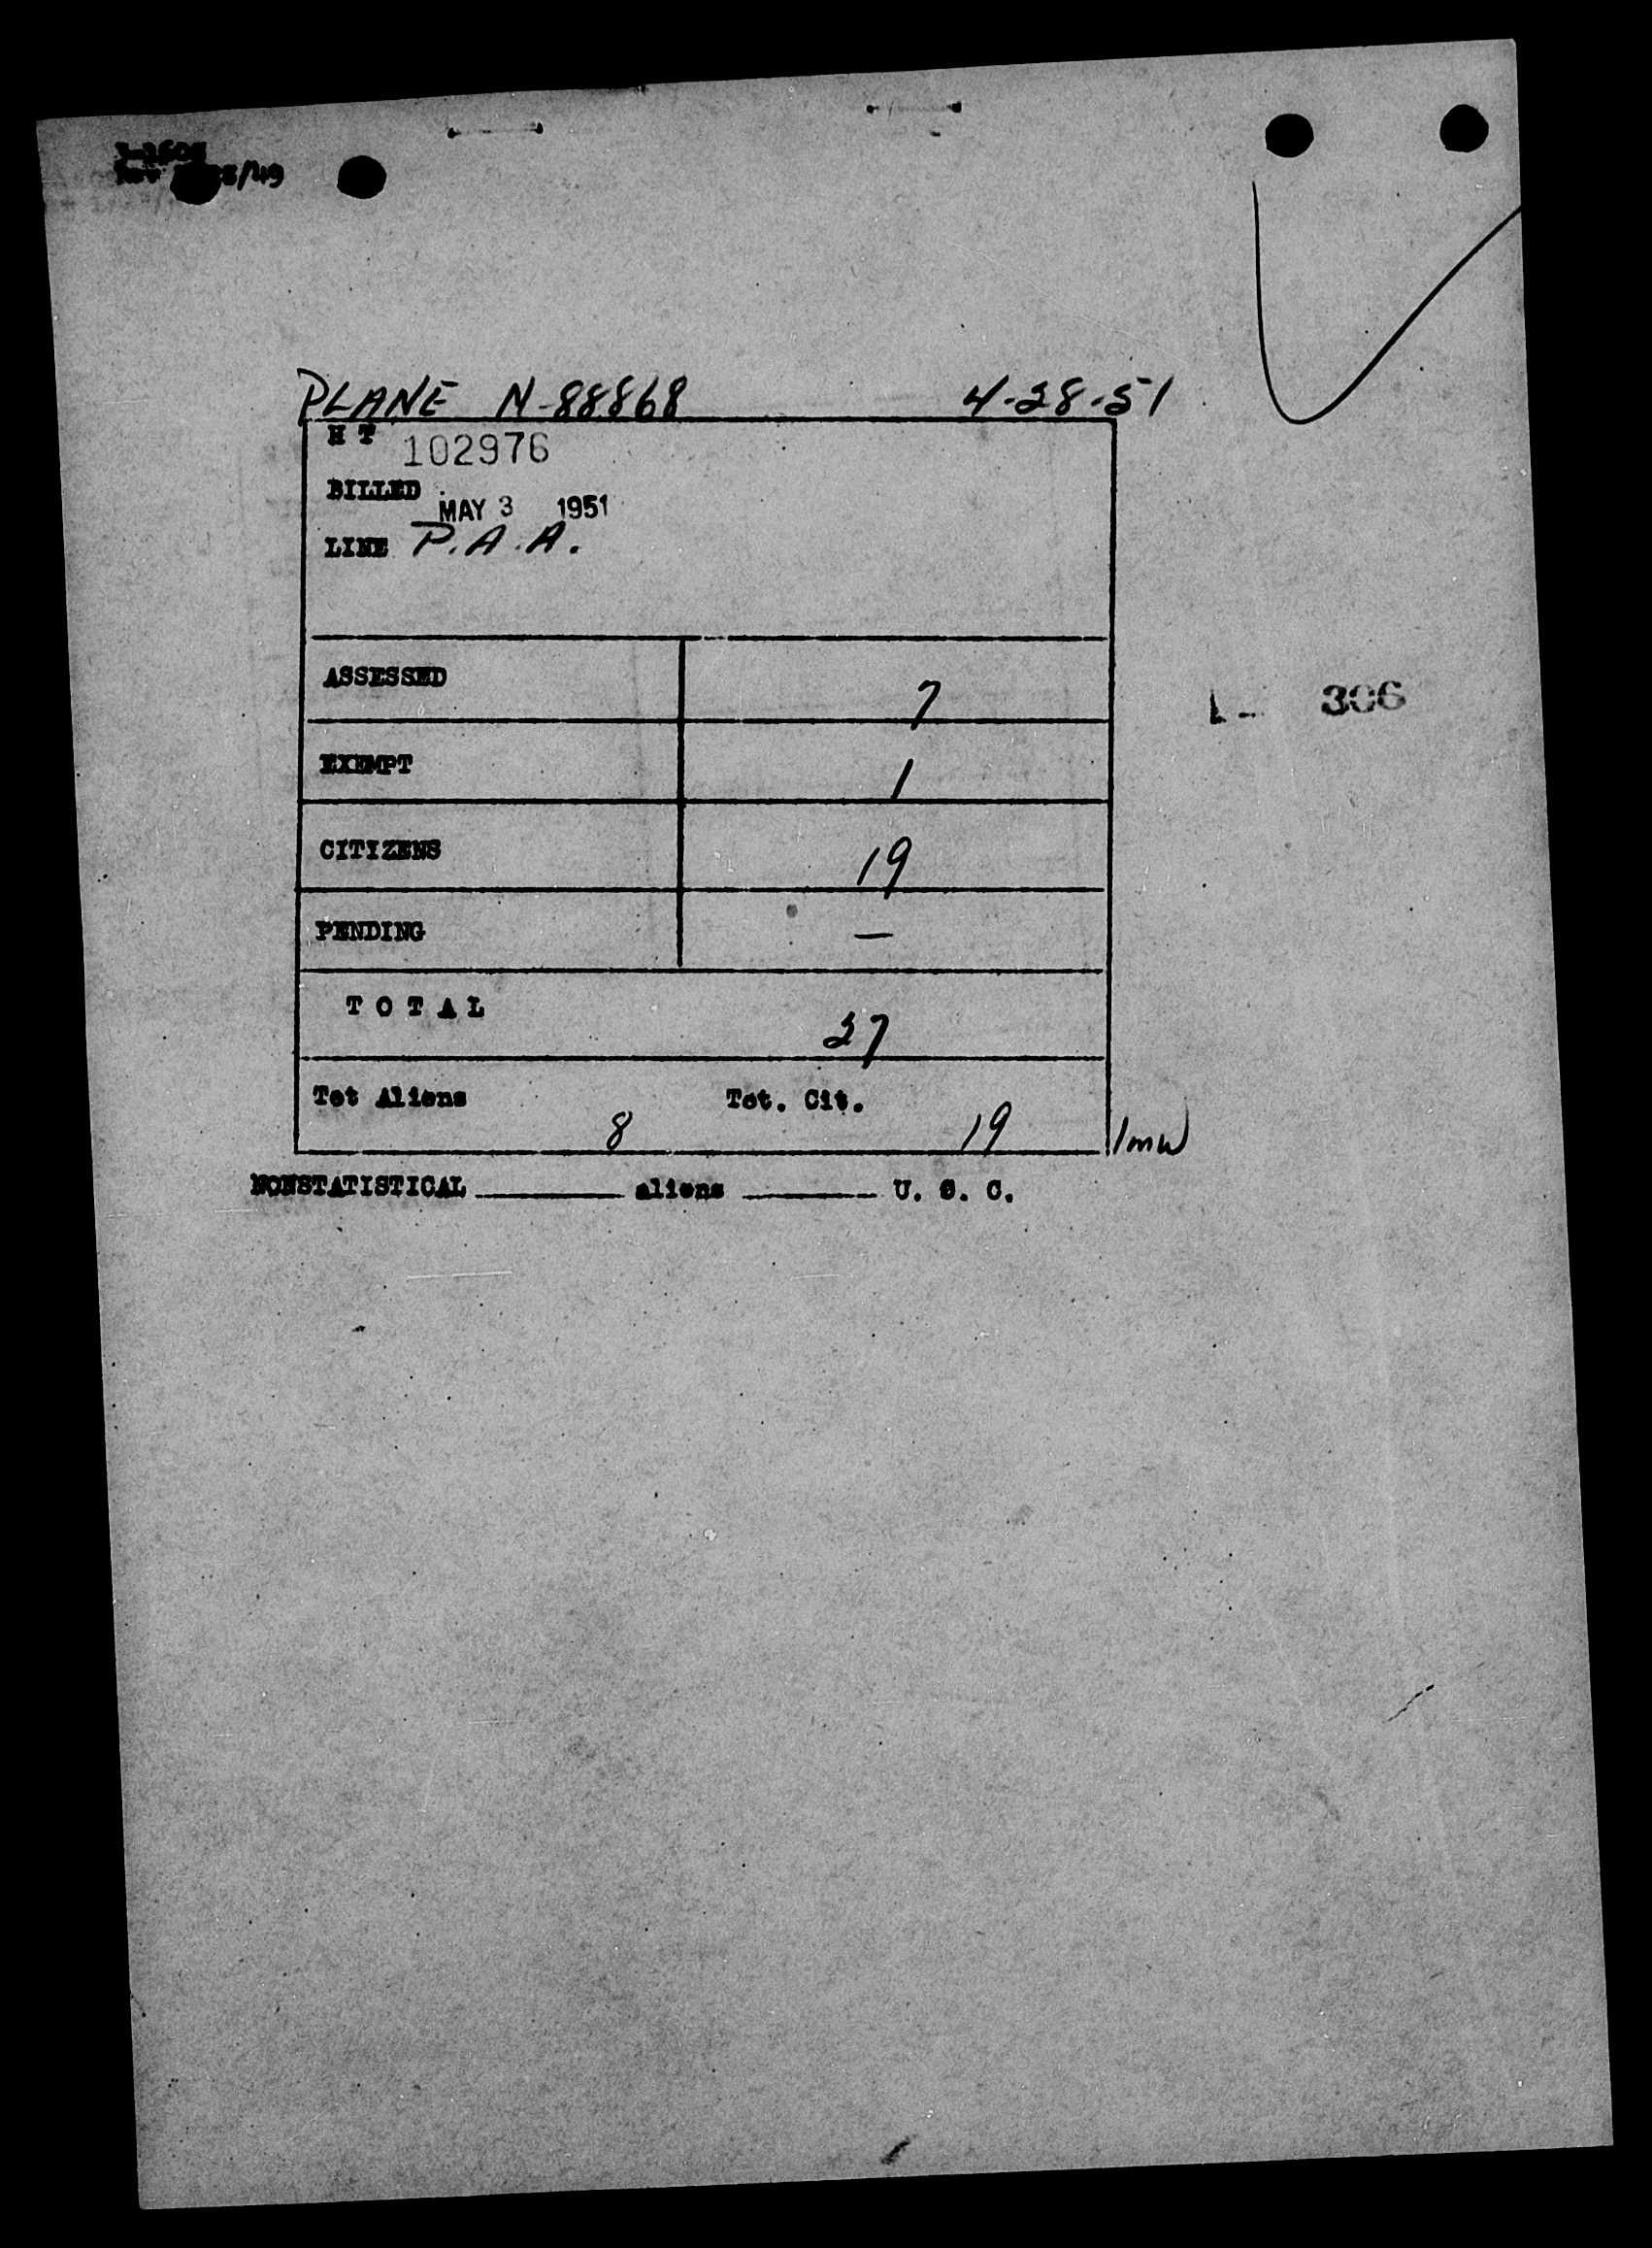 PLANE N-88868 4-28-51
H T 102976
BILLED MAY 3 1951
LINE P.A.A.
ASSESSED 7
EXEMPT 1
CITIZENS 19
PENDING —
TOTAL 27
Tot Aliens 8 Tot. Cit. 19
NONSTATISTICAL ______ aliens ______ U. S. C.
306